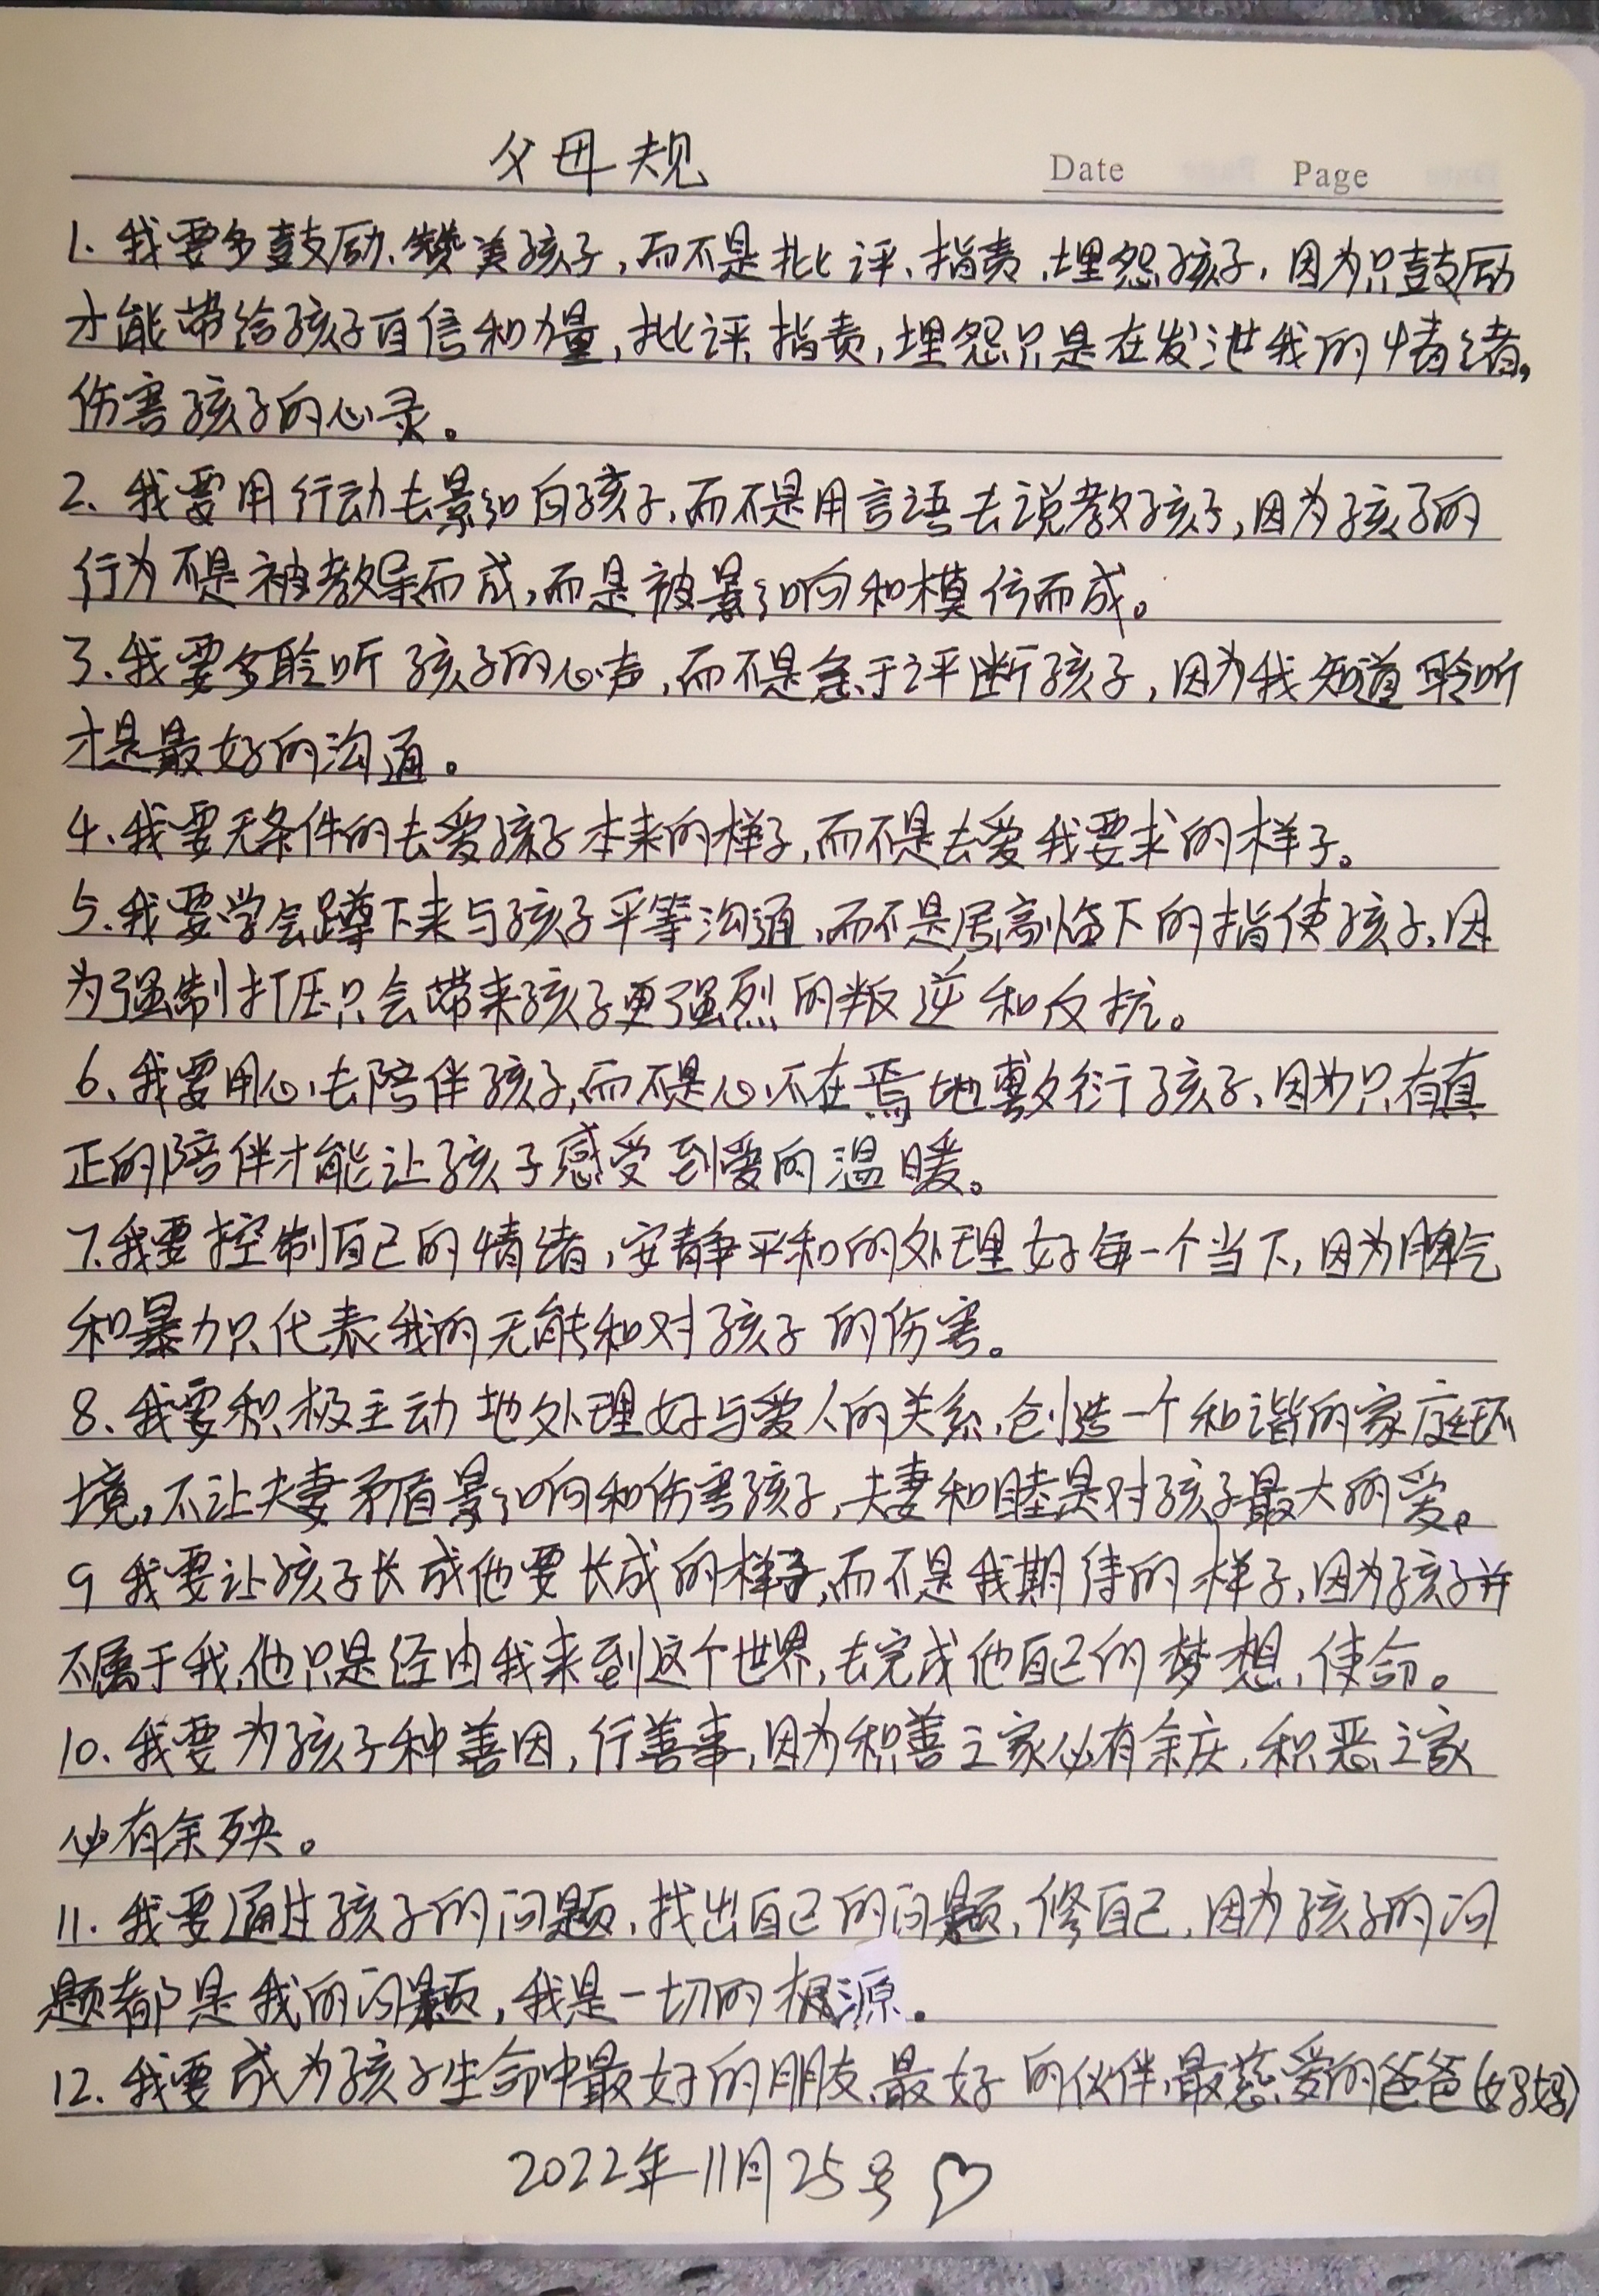 父母规
Date Page
1、我要多鼓励、赞美孩子，而不是批评、指责、埋怨孩子，因为只鼓励
才能带给孩子自信和力量，批评、指责，埋怨只是在发泄我的情绪。
伤害孩子的心灵。
2、我要用行动去影响孩子，而不是用言语去说教孩子，因为孩子的
行为不是被教导而成，而是被影响和模仿而成。
3、我要多聆听孩子的心声，而不是急于评断孩子，因为我知道聆听
才是最好的沟通。
4、我要无条件的去爱孩子本来的样子，而不是去爱我要求的样子。
5、我要学会蹲下来与孩子平等沟通，而不是居高临下的指使孩子，因
为强制打压只会带来孩子更强烈的叛逆和反抗。
6、我要用心去陪伴孩子，而不是心不在焉地敷衍孩子，因为只有真
正的陪伴才能让孩子感受到爱的温暖。
7、我要控制自己的情绪，安静平和的处理好每一个当下，因为脾气
和暴力只代表我的无能和对孩子的伤害。
8、我要积极主动地处理好与爱人的关系，创造一个和谐的家庭环
境，不让夫妻矛盾影响和伤害孩子，夫妻和睦是对孩子最大的爱。
9 我要让孩子长成他要长成的样子，而不是我期待的样子，因为孩子并
不属于我，他只是经由我来到这个世界，去完成他自己的梦想，使命。
10、我要为孩子种善因，行善事，因为积善之家必有余庆，积恶之家
必有余殃。
11、我要通过孩子的问题，找出自己的问题，修自己，因为孩子的问
题都是我的问题，我是一切的根源。
12、我要成为孩子生命中最好的朋友、最好的伙伴、最慈爱的爸爸(妈妈)
2022年11月25号